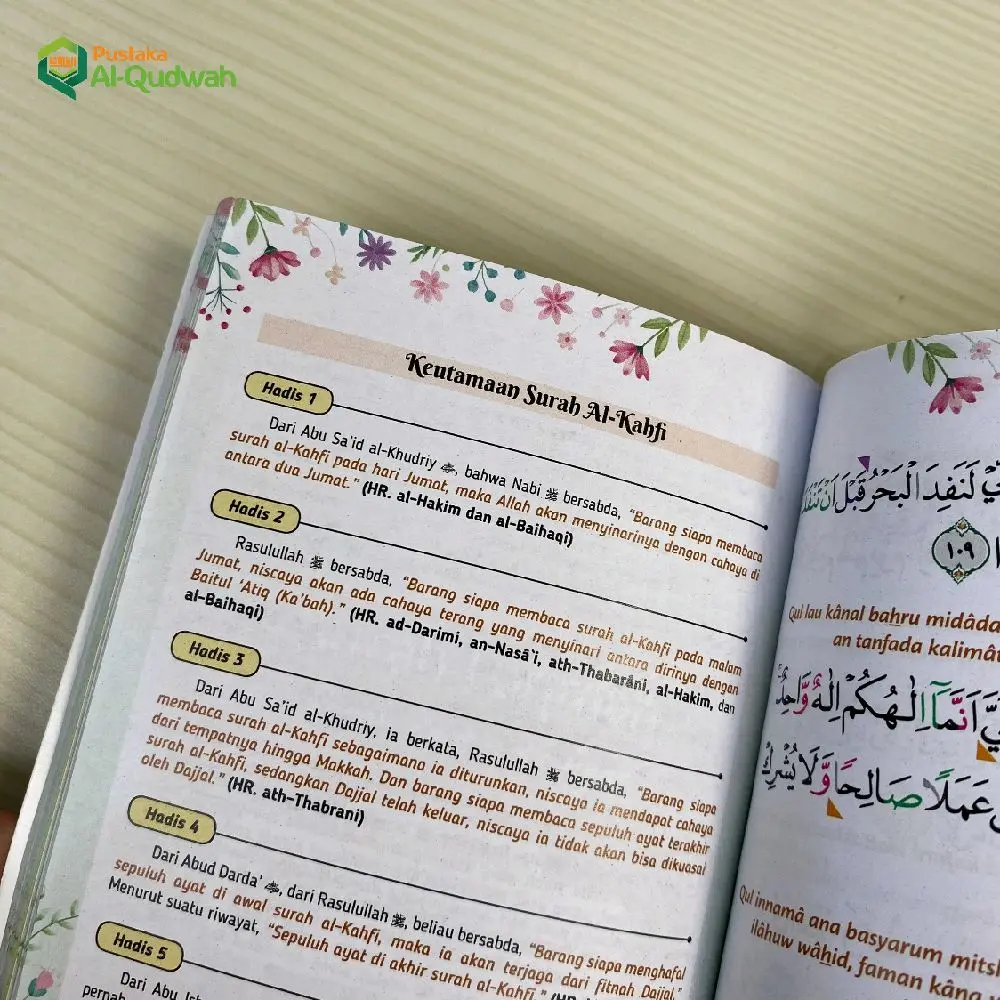 Pustaka
Al-Qudwah
Keutamaan Surah Al-Kahfi
Hadis 1
Dari Abu Sa'id al-Khudriy ؓ, bahwa Nabi ﷺ bersabda, "Barang siapa membaca
surah al-Kahfi pada hari Jumat, maka Allah akan menyinarinya dengan cahaya di
antara dua Jumat." (HR. al-Hakim dan al-Baihaqi)
Hadis 2
Rasulullah ﷺ bersabda, "Barang siapa membaca surah al-Kahfi pada malam
Jumat, niscaya akan ada cahaya terang yang menyinari antara dirinya dengan
Baitul 'Atiq (Ka'bah)." (HR. ad-Darimi, an-Nasâ'i, ath-Thabarâni, al-Hakim, dan
al-Baihaqi)
Hadis 3
Dari Abu Sa'id al-Khudriy, ia berkata, Rasulullah ﷺ bersabda, "Barang siapa
membaca surah al-Kahfi sebagaimana ia diturunkan, niscaya ia mendapat cahaya
dari tempatnya hingga Makkah. Dan barang siapa membaca sepuluh ayat terakhir
surah al-Kahfi, sedangkan Dajjal telah keluar, niscaya ia tidak akan bisa dikuasai
oleh Dajjal." (HR. ath-Thabrani)
Hadis 4
Dari Abud Darda' ؓ, dari Rasulullah ﷺ, beliau bersabda, "Barang siapa menghafal
sepuluh ayat di awal surah al-Kahfi, maka ia akan terjaga dari fitnah Dajjal."
Menurut suatu riwayat, "Sepuluh ayat di akhir surah al-Kahfi."
Hadis 5
Dari Abu
لَنَفِدَ الْبَحْرُ قَبْلَ اَنْ تَنْفَدَ
١٠٩
Qul lau kânal bahru midâda
an tanfada kalimât
اَنَّمَآ اِلٰهُكُمْ اِلٰهٌ وَّاحِدٌ
عَمَلًا صَالِحًا وَّلَا يُشْرِكْ
Qul innamâ ana basyarum mitsl
ilâhuw wâhid, faman kâna